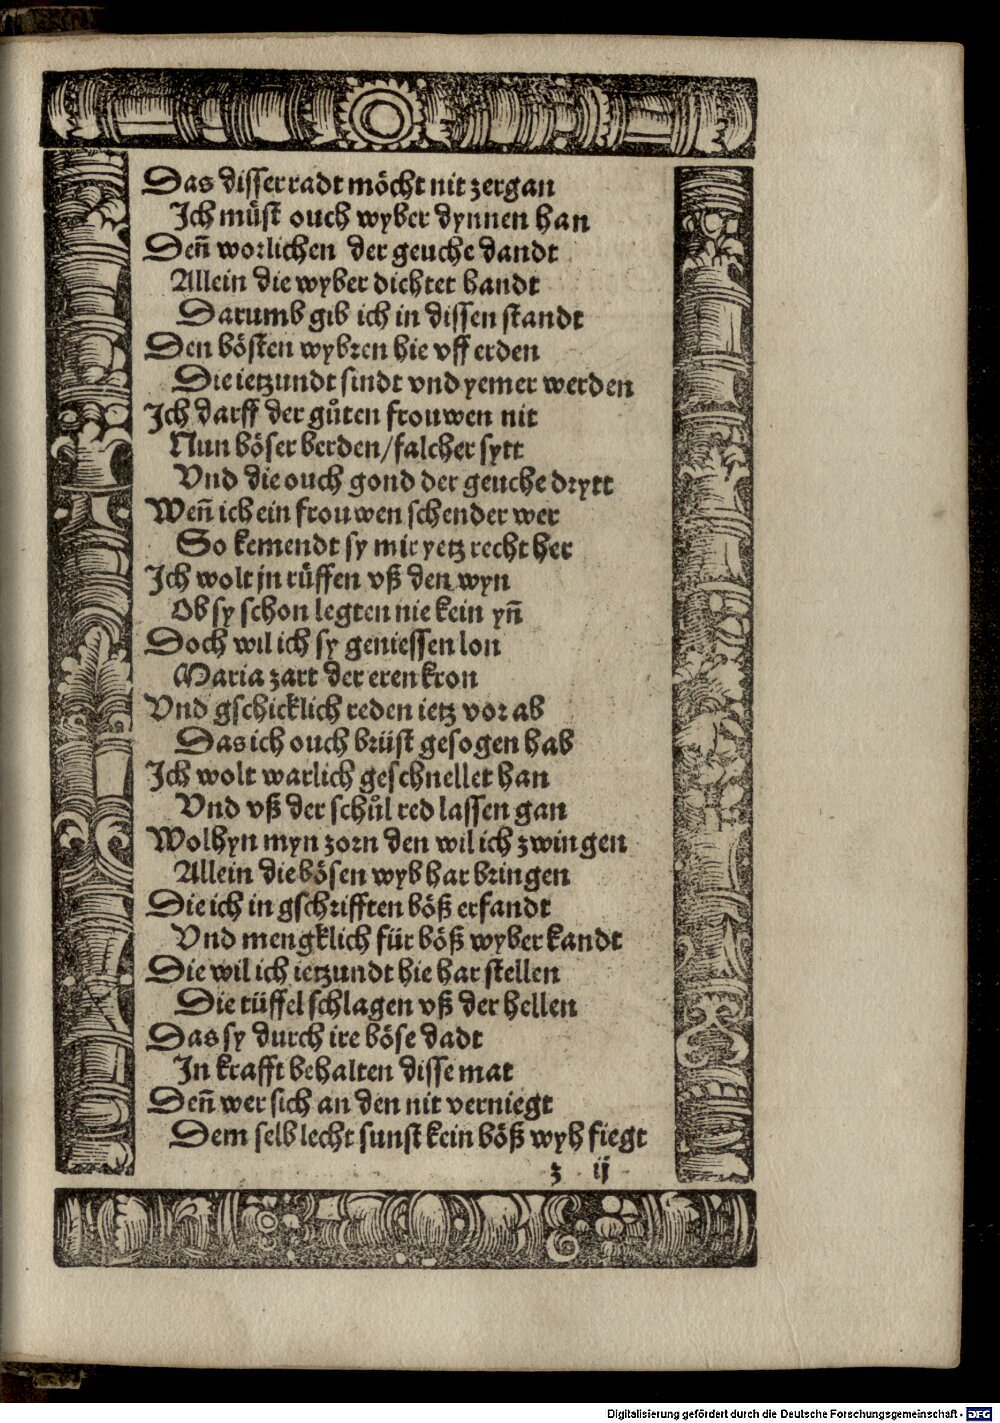 Das disser radt möcht nit zergan
Ich müst ouch wyber dynnen han
Deñ worlichen der geuche dandt
Allein die wyber dichtet handt
Darumb gib ich in dissen standt
Den bösten wybren hie vff erden
Die ietzundt sindt vnd yemer werden
Ich darff der gůten frouwen nit
Nun böser berden/falcher sytt
Vnd die ouch gond der geuche drytt
Weñ ich ein frouwen schender wer
So kemendt sy mir yetz recht her
Ich wolt jn rüffen vß den wyn
Ob sy schon legten nie kein yñ
Doch wil ich sy geniessen lon
Maria zart der eren kron
Vnd gschicklich reden ietz vor ab
Das ich ouch brüst gesogen hab
Ich wolt warlich geschnellet han
Vnd vß der schůl red lassen gan
Wolhyn myn zorn den wil ich zwingen
Allein die bösen wyb har bringen
Die ich in gschrifften böß erfandt
Vnd mengklich für böß wyber kandt
Die wil ich ietzundt hie har stellen
Die tüffel schlagen vß der hellen
Das sy durch ire böse dadt
In krafft behalten disse mat
Deñ wer sich an den nit verniegt
Dem selb lecht sunst kein böß wyb fiegt
z ij
Digitalisierung gefördert durch die Deutsche Forschungsgemeinschaft - DFG